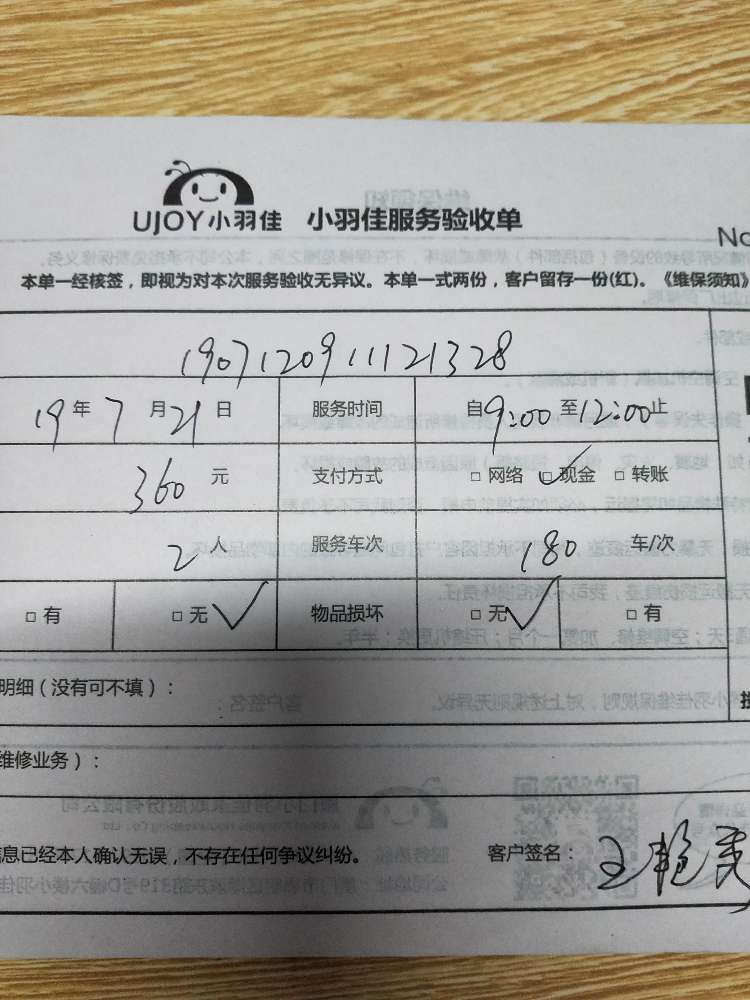 UJOY小羽佳 小羽佳服务验收单
No
本单一经核签，即视为对本次服务验收无异议。本单一式两份，客户留存一份(红)。《维保须知》
1907120911121328
19年7月21日 服务时间 自9:00至12:00止
360元 支付方式 □ 网络 □ 现金 □ 转账
2人 服务车次 180 车/次
□ 有 □ 无 物品损坏 □ 无 □ 有
明细（没有可不填）：
维修业务）：
信息已经本人确认无误，不存在任何争议纠纷。 客户签名：